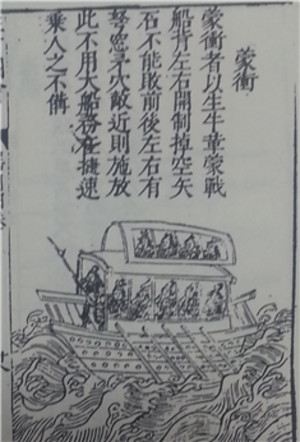 蒙衝
蒙衝者以生牛革蒙戰
船背左右開制掉空矢
石不能敗前後左右有
弩窓矛穴敵近則施放
此不用大船務在捷速
乗人之不俻